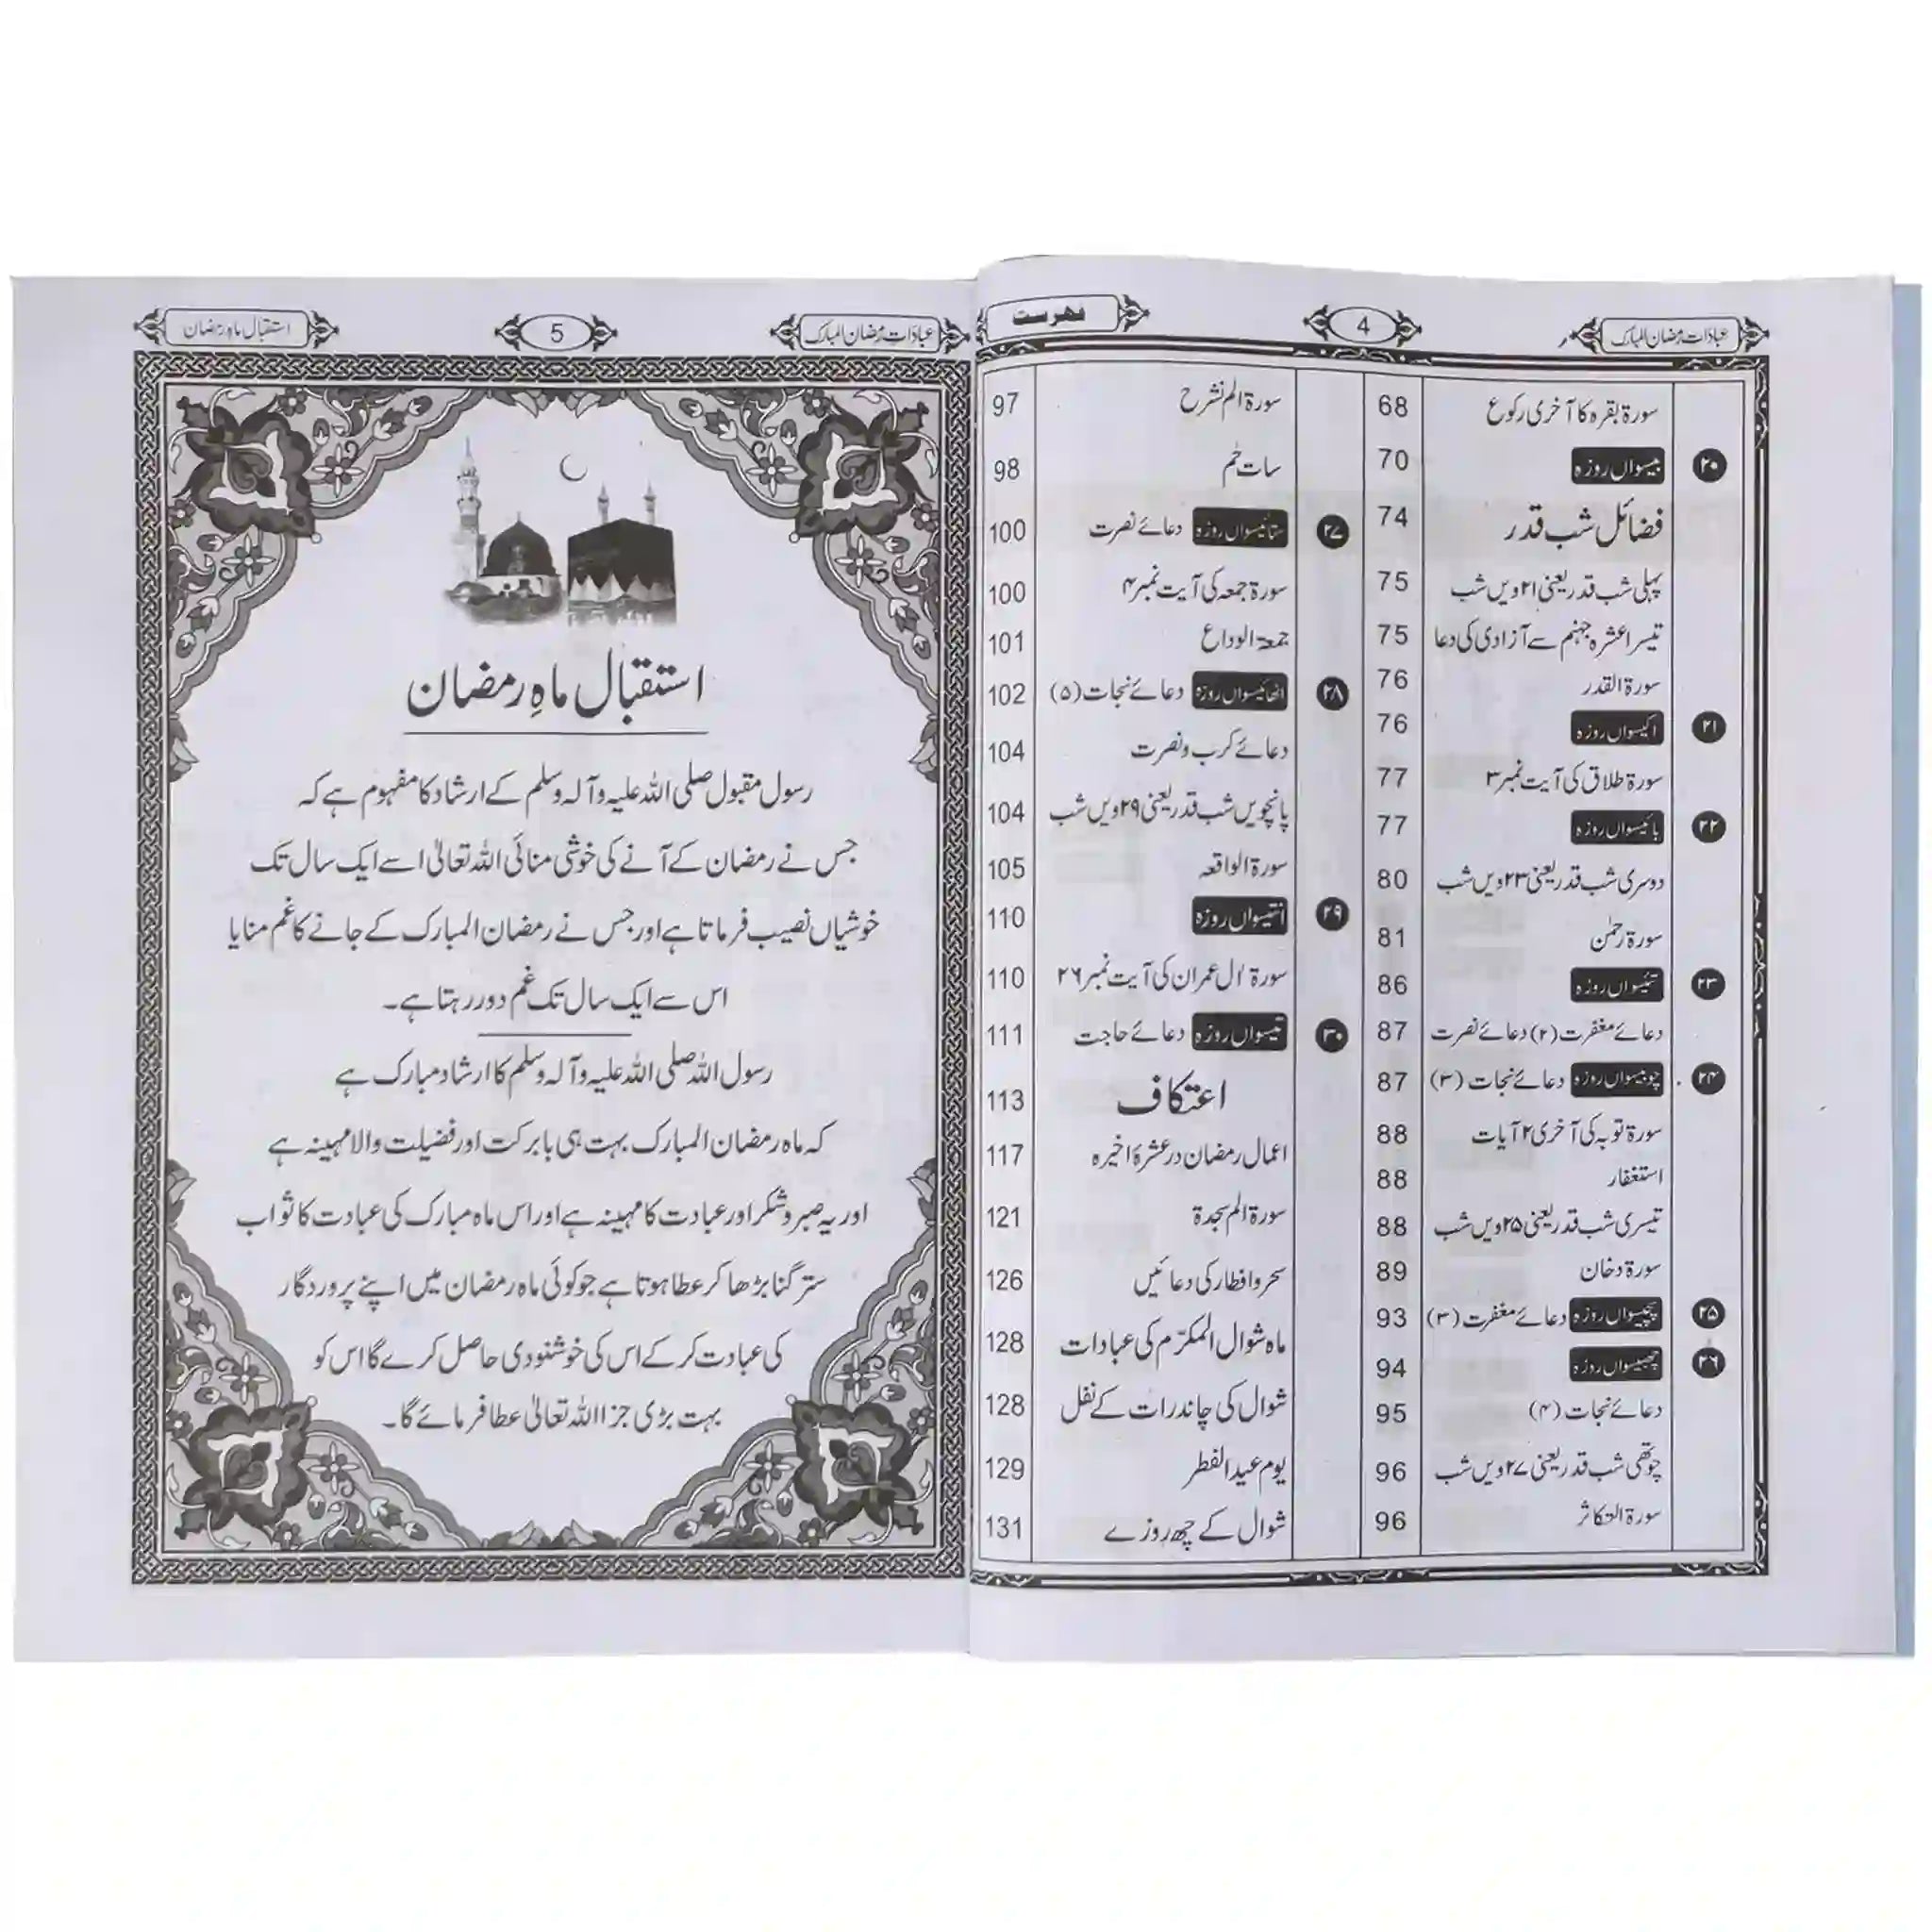 عبادات رمضان المبارک
4
فہرست
سورۃ بقرہ کا آخری رکوع 68
۲۰ بیسواں روزہ 70
فضائل شب قدر 74
پہلی شب قدر یعنی ۲۱ ویں شب 75
تیسرا عشرہ جہنم سے آزادی کی دعا 75
سورۃ القدر 76
۲۱ اکیسواں روزہ 76
سورۃ طلاق کی آیت نمبر ۳ 77
۲۲ بائیسواں روزہ 77
دوسری شب قدر یعنی ۲۳ ویں شب 80
سورۃ رحمٰن 81
۲۳ تئیسواں روزہ 86
دعائے مغفرت (۲) دعائے نصرت 87
۲۴ چوبیسواں روزہ دعائے نجات (۳) 87
سورۃ توبہ کی آخری ۲ آیات 88
استغفار 88
تیسری شب قدر یعنی ۲۵ ویں شب 88
سورۃ دخان 89
۲۵ پچیسواں روزہ دعائے مغفرت (۳) 93
۲۶ چھبیسواں روزہ 94
دعائے نجات (۴) 95
چوتھی شب قدر یعنی ۲۷ ویں شب 96
سورۃ التکاثر 96
سورۃ الم نشرح 97
سات حٰم 98
۲۷ ستائیسواں روزہ دعائے نصرت 100
سورۃ جمعہ کی آیت نمبر ۴ 100
جمعۃ الوداع 101
۲۸ اٹھائیسواں روزہ دعائے نجات (۵) 102
دعائے کرب و نصرت 104
پانچویں شب قدر یعنی ۲۹ ویں شب 104
سورۃ الواقعہ 105
۲۹ انتیسواں روزہ 110
سورۃ اٰل عمران کی آیت نمبر ۲۶ 110
۳۰ تیسواں روزہ دعائے حاجت 111
اعتکاف 113
اعمال رمضان در عشرۂ اخیرہ 117
سورۃ الم سجدۃ 121
سحر و افطار کی دعائیں 126
ماہ شوال المکرّم کی عبادات 128
شوال کی چاند رات کے نفل 128
یوم عید الفطر 129
شوال کے چھ روزے 131
عبادات رمضان المبارک
5
استقبال ماہِ رمضان
استقبال ماہِ رمضان
رسول مقبول صلی اللہ علیہ وآلہ وسلم کے ارشاد کا مفہوم ہے کہ
جس نے رمضان کے آنے کی خوشی منائی اللہ تعالیٰ اسے ایک سال تک
خوشیاں نصیب فرماتا ہے اور جس نے رمضان المبارک کے جانے کا غم منایا
اس سے ایک سال تک غم دور رہتا ہے۔
رسول اللہ صلی اللہ علیہ وآلہ وسلم کا ارشاد مبارک ہے
کہ ماہ رمضان المبارک بہت ہی بابرکت اور فضیلت والا مہینہ ہے
اور یہ صبر و شکر اور عبادت کا مہینہ ہے اور اس ماہ مبارک کی عبادت کا ثواب
ستر گنا بڑھا کر عطا ہوتا ہے جو کوئی ماہ رمضان میں اپنے پروردگار
کی عبادت کر کے اس کی خوشنودی حاصل کرے گا اس کو
بہت بڑی جزا اللہ تعالیٰ عطا فرمائے گا۔